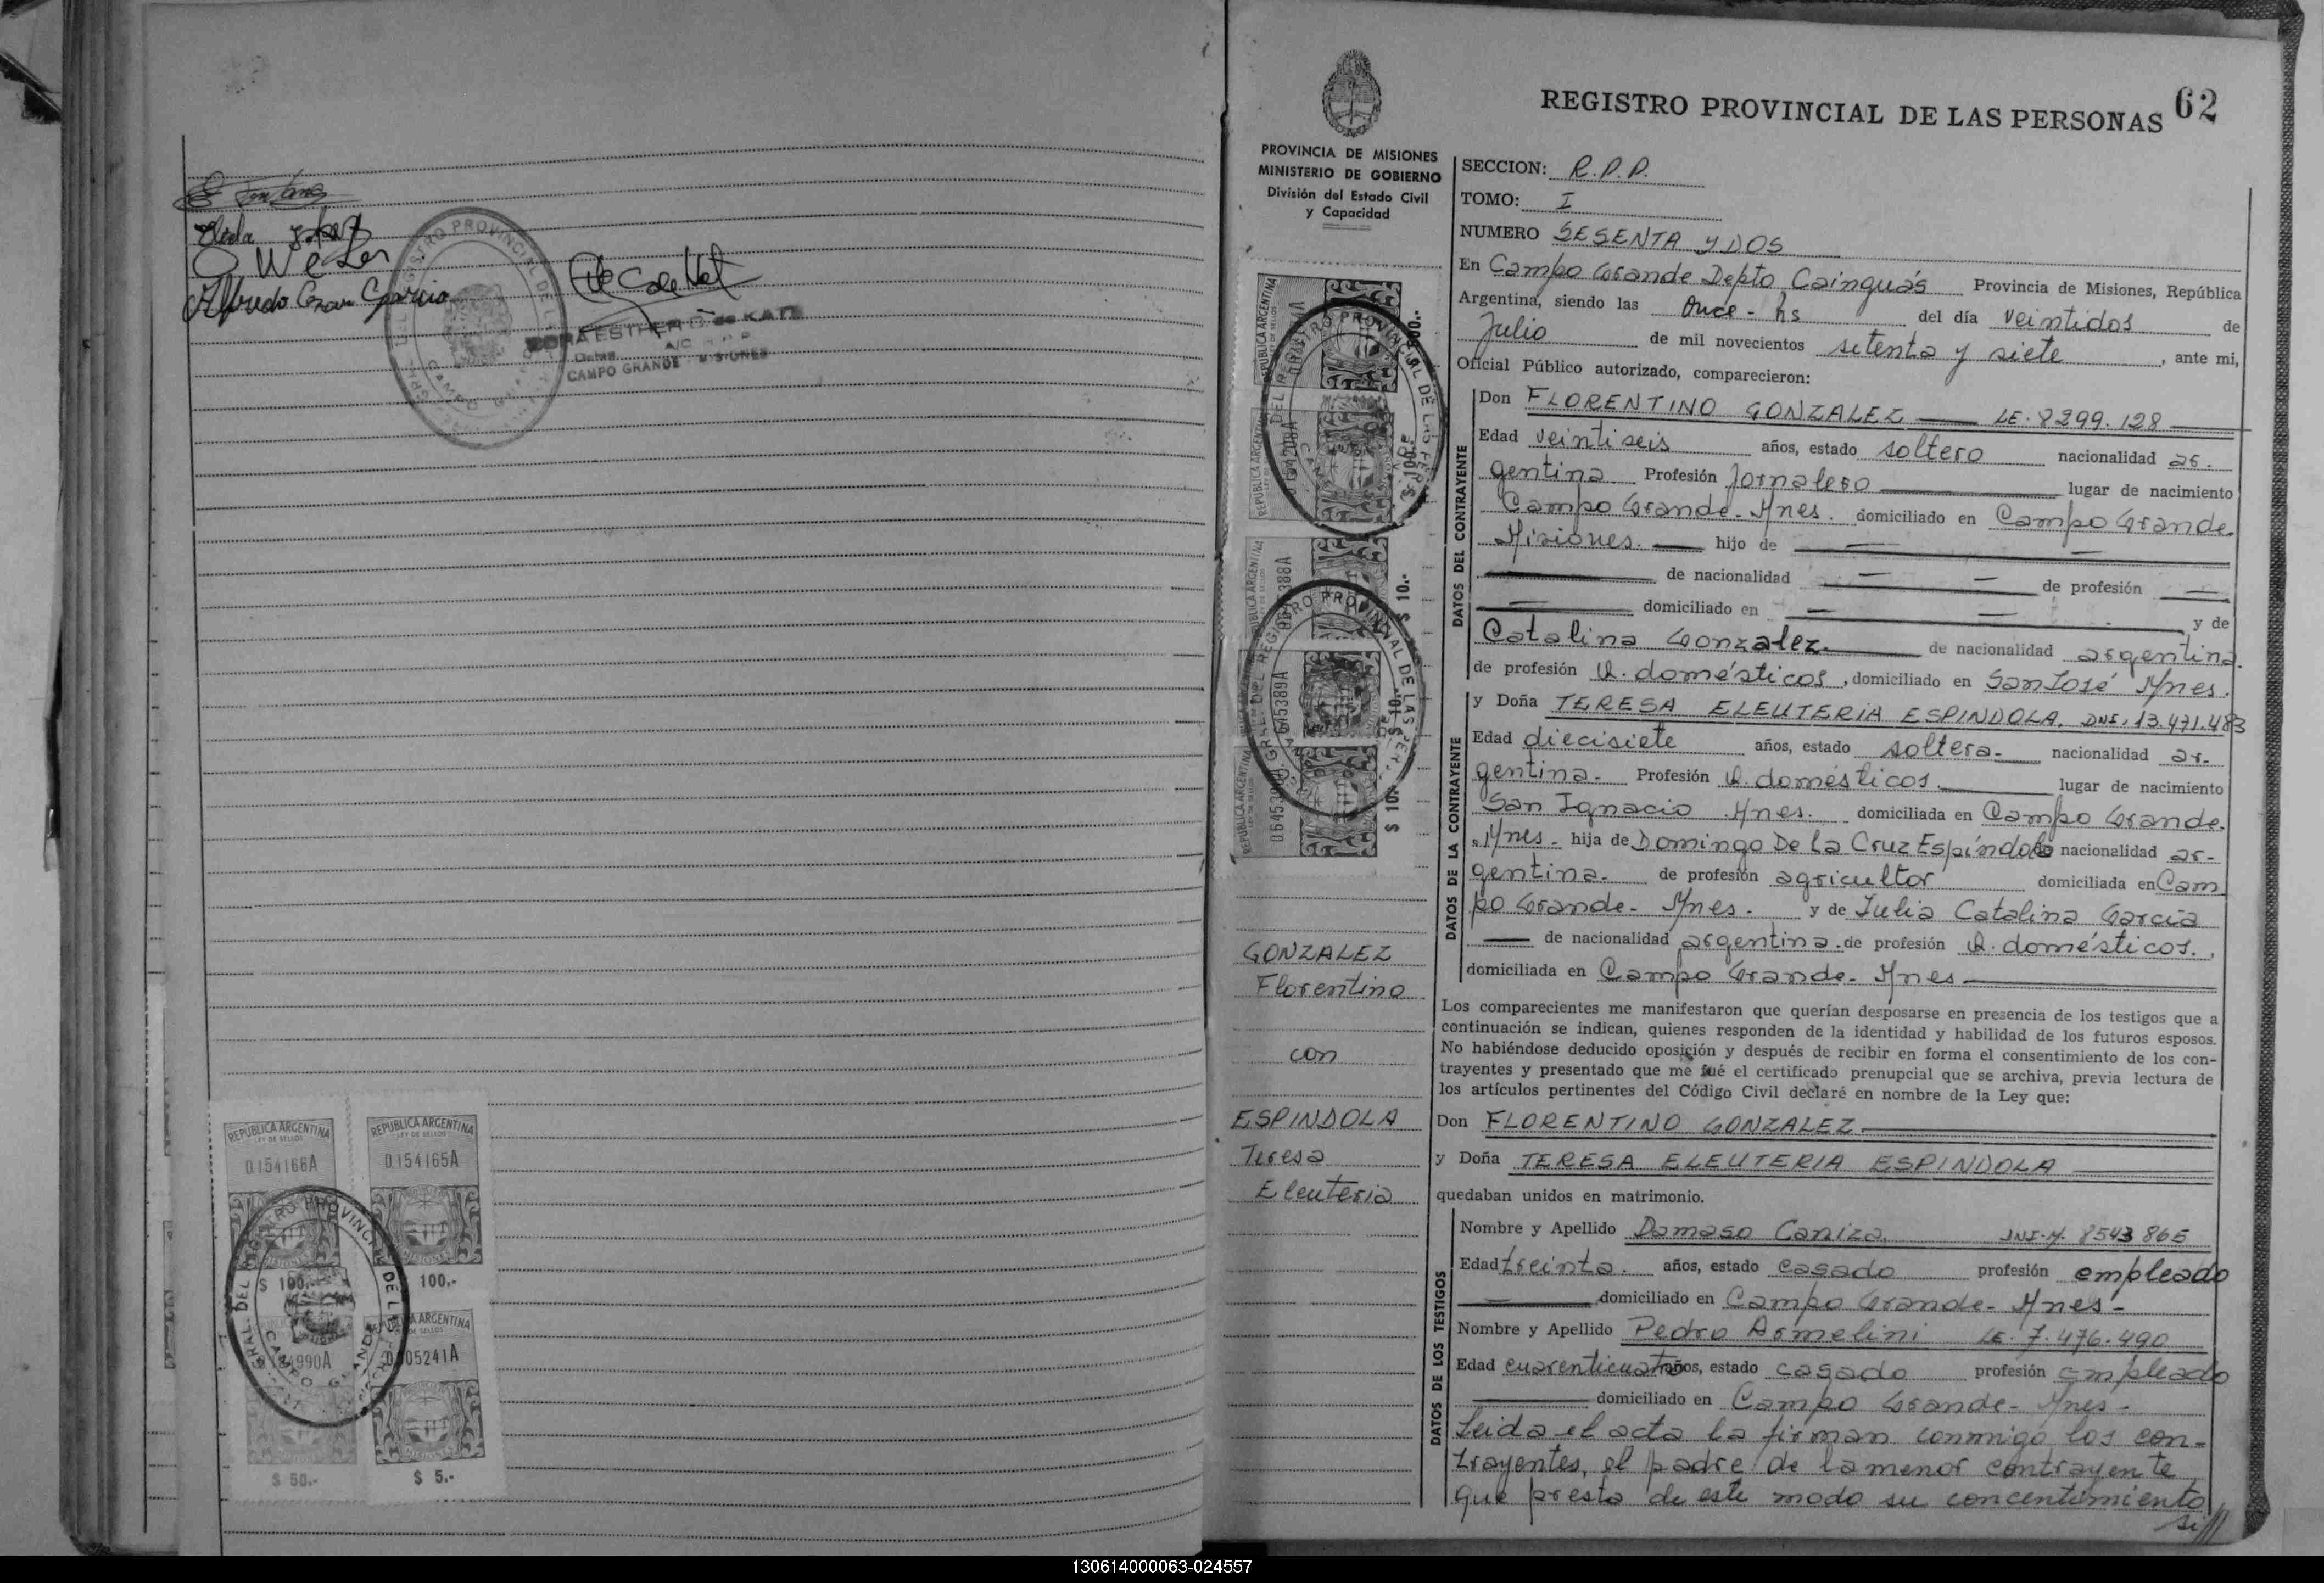 Elida
O Weber
Alfredo Cesar Garcia
CAMPO GRANDE MISIONES
REPUBLICA ARGENTINA
LEY DE SELLOS
0154166A
REPUBLICA ARGENTINA
LEY DE SELLOS
0154165A
$ 100.-
100.-
05241A
$ 50.-
$ 5.-
REGISTRO PROVINCIAL DE LAS PERSONAS 62
PROVINCIA DE MISIONES
MINISTERIO DE GOBIERNO
División del Estado Civil
y Capacidad
SECCION: R.P.P.
TOMO: I
NUMERO SESENTA y DOS
En Campo Grande Depto Cainguás Provincia de Misiones, República
Argentina, siendo las Once - hs del día veintidos de
Julio de mil novecientos setenta y siete, ante mi,
Oficial Público autorizado, comparecieron:
DATOS DEL CONTRAYENTE
Don FLORENTINO GONZALEZ LE. 8299.128
Edad veintiseis años, estado soltero nacionalidad ar-
gentina Profesión Jornalero lugar de nacimiento
Campo Grande- Mnes. domiciliado en Campo Grande-
Misiones. hijo de
de nacionalidad de profesión
domiciliado en y de
Catalina Gonzalez. de nacionalidad argentina.
de profesión Q. domésticos, domiciliado en San José Mnes.
DATOS DE LA CONTRAYENTE
y Doña TERESA ELEUTERIA ESPINDOLA. DNI. 13.471.483
Edad diecisiete años, estado soltera- nacionalidad ar-
gentina- Profesión Q. domésticos. lugar de nacimiento
San Ignacio Mnes. domiciliada en Campo Grande.
Mnes- hija de Domingo De la Cruz Espíndola nacionalidad ar-
gentina. de profesión agricultor domiciliada en Cam
po Grande- Mnes. y de Julia Catalina García
de nacionalidad argentina. de profesión Q. domésticos.,
domiciliada en Campo Grande- Mnes
Los comparecientes me manifestaron que querían desposarse en presencia de los testigos que a
continuación se indican, quienes responden de la identidad y habilidad de los futuros esposos.
No habiéndose deducido oposición y después de recibir en forma el consentimiento de los con-
trayentes y presentado que me fué el certificado prenupcial que se archiva, previa lectura de
los artículos pertinentes del Código Civil declaré en nombre de la Ley que:
Don FLORENTINO GONZALEZ.
y Doña TERESA ELEUTERIA ESPINDOLA
quedaban unidos en matrimonio.
GONZALEZ
Florentino
con
ESPINDOLA
Teresa
Eleuteria
DATOS DE LOS TESTIGOS
Nombre y Apellido Damaso Caniza. DNI. M. 8543865
Edad treinta. años, estado casado profesión empleado
domiciliado en Campo Grande- Mnes-
Nombre y Apellido Pedro Armelini LE. 7.476.490
Edad cuarenticuatro años, estado casado profesión empleado
domiciliado en Campo Grande- Mnes-
Leida el acta la firman conmigo los con-
trayentes, el padre de la menor contrayente
que presta de este modo su concentimiento
130614000063-024557